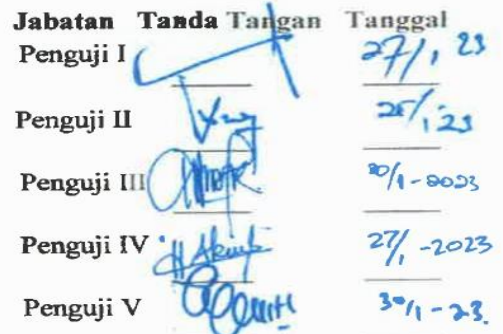 Jabatan Tanda Tangan Tanggal
Penguji I 27/1 23
Penguji II
Penguji III 30/1-2023
Penguji IV 27/1-2023
Penguji V 30/1-23.